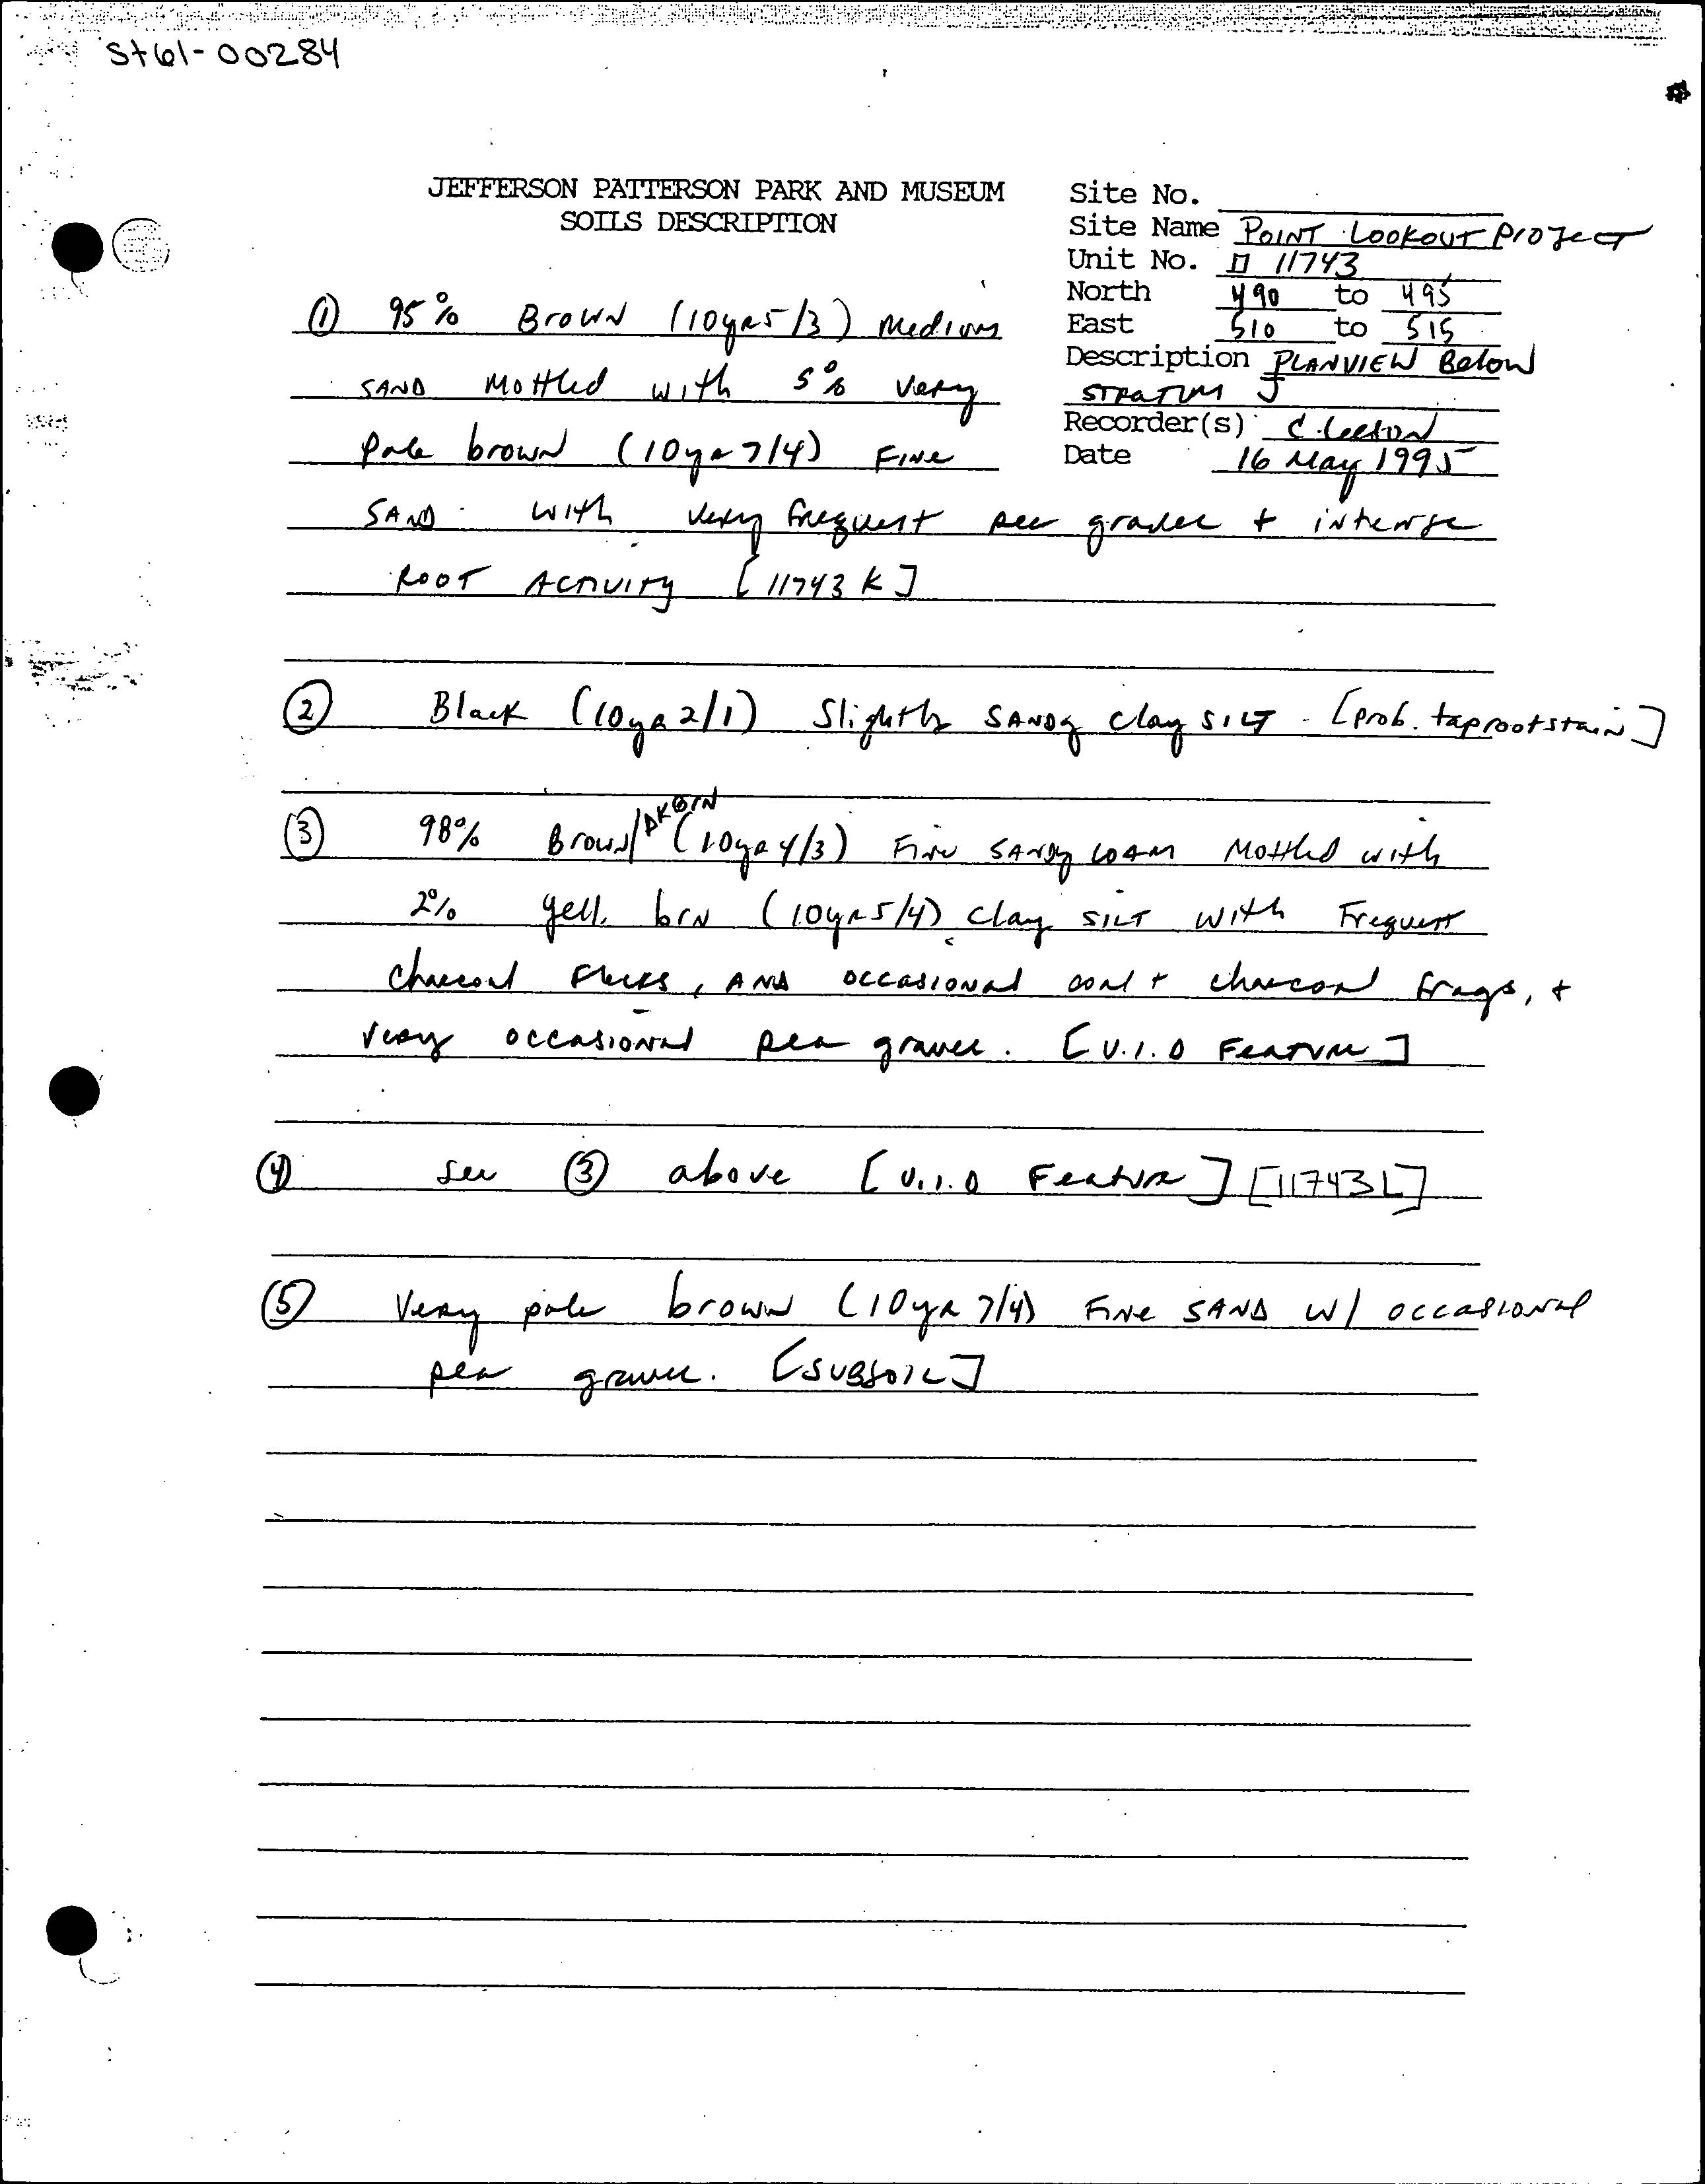 St61-00284
JEFFERSON PATTERSON PARK AND MUSEUM
SOILS DESCRIPTION
Site No.
Site Name POINT LOOKOUT PROJECT
Unit No. 11743
North 490 to 495
East 510 to 515
Description PLANVIEW Below
STRATUM J
Recorder(s) C.
Date 16 May 1995
① 95% BROWN (10yr5/3) Medium
SAND Mottled with 5% very
pale brown (10yr7/4) FINE
SAND with very frequent pea gravel + intense
ROOT ACTIVITY [11743 K]
② Black (10yr2/1) Slightly SANDy clay SILT - [prob. taprootstain]
③ 98% Brown/DKBrN (10yr4/3) Fine SANDy LOAM Mottled with
2% yell. brN (10yr5/4) clay SILT with Frequent
charcoal Flecks, AND occasional coal + charcoal frags, +
very occasional pea gravel. [U.I.D FeatuRe]
④ see ③ above [U.I.D FeatuRe] [11743L]
⑤ Very pale brown (10yR 7/4) FINe SAND w/ occasional
pea gravel. [SUBSOIL]